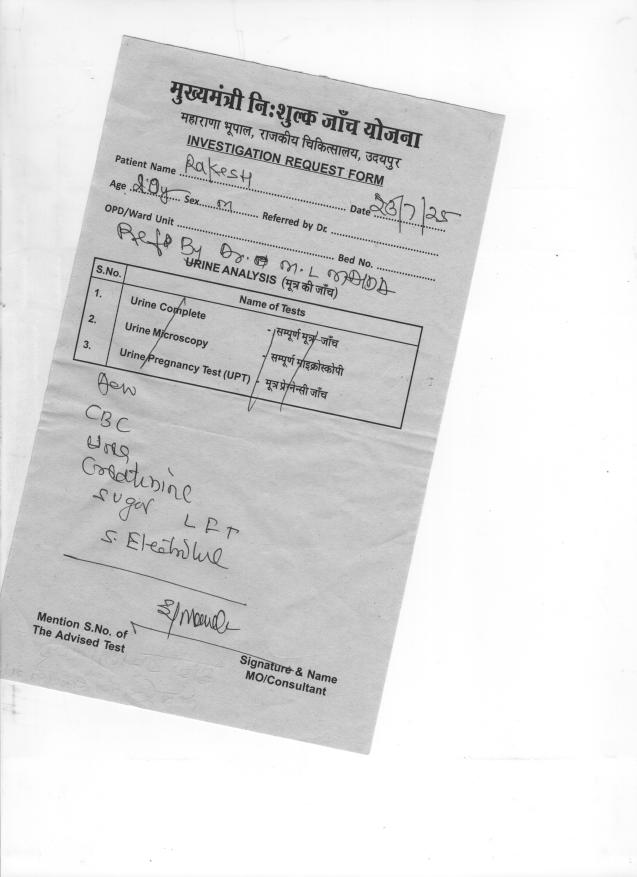 मुख्यमंत्री निःशुल्क जाँच योजना
महाराणा भूपाल, राजकीय चिकित्सालय, उदयपुर
INVESTIGATION REQUEST FORM
Patient Name Rakesh Date 23/7/25
Age Sex M Referred by Dr.
OPD/Ward Unit Bed No.
By Dr. M. L
URINE ANALYSIS (मूत्र की जाँच)
S.No. Name of Tests
1. Urine Complete - सम्पूर्ण मूत्र जाँच
2. Urine Microscopy - सम्पूर्ण माइक्रोस्कोपी
3. Urine Pregnancy Test (UPT) - मूत्र प्रेगनेन्सी जाँच
CBC
Urea
Creatinine
Sugar LFT
Mention S.No. of
The Advised Test
Signature & Name
MO/Consultant